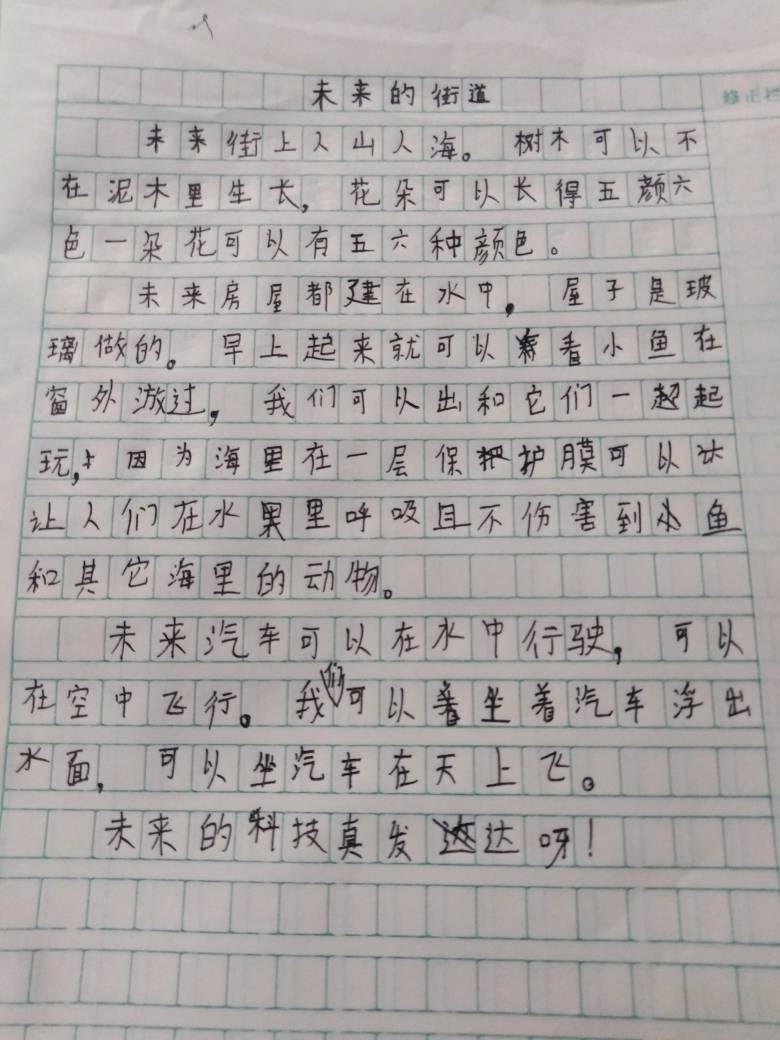 未来的街道
修正栏
未来街上人山人海。树木可以不
在泥木里生长，花朵可以长得五颜六
色一朵花可以有五六种颜色。
未来房屋都建在水中，屋子是玻
璃做的。早上起来就可以看小鱼在
窗外游过，我们可以出和它们一起
玩，因为海里在一层保护膜可以达
让人们在水里呼吸且不伤害到小鱼
和其它海里的动物。
未来汽车可以在水中行驶，可以
在空中飞行。我们可以坐着汽车浮出
水面，可以坐汽车在天上飞。
未来的科技真发达呀！